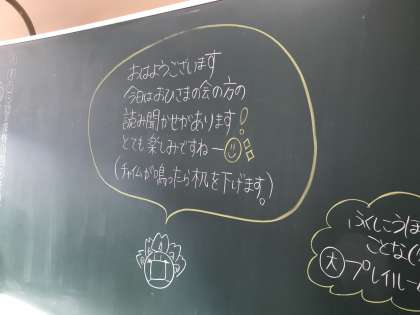 おはようございます
今日はおひさまの会の方の
読み聞かせがあります!
とても楽しみですねー
(チャイムが鳴ったら机を下げます)。
ふくしこうほ
ことな(
大 プレイルーム